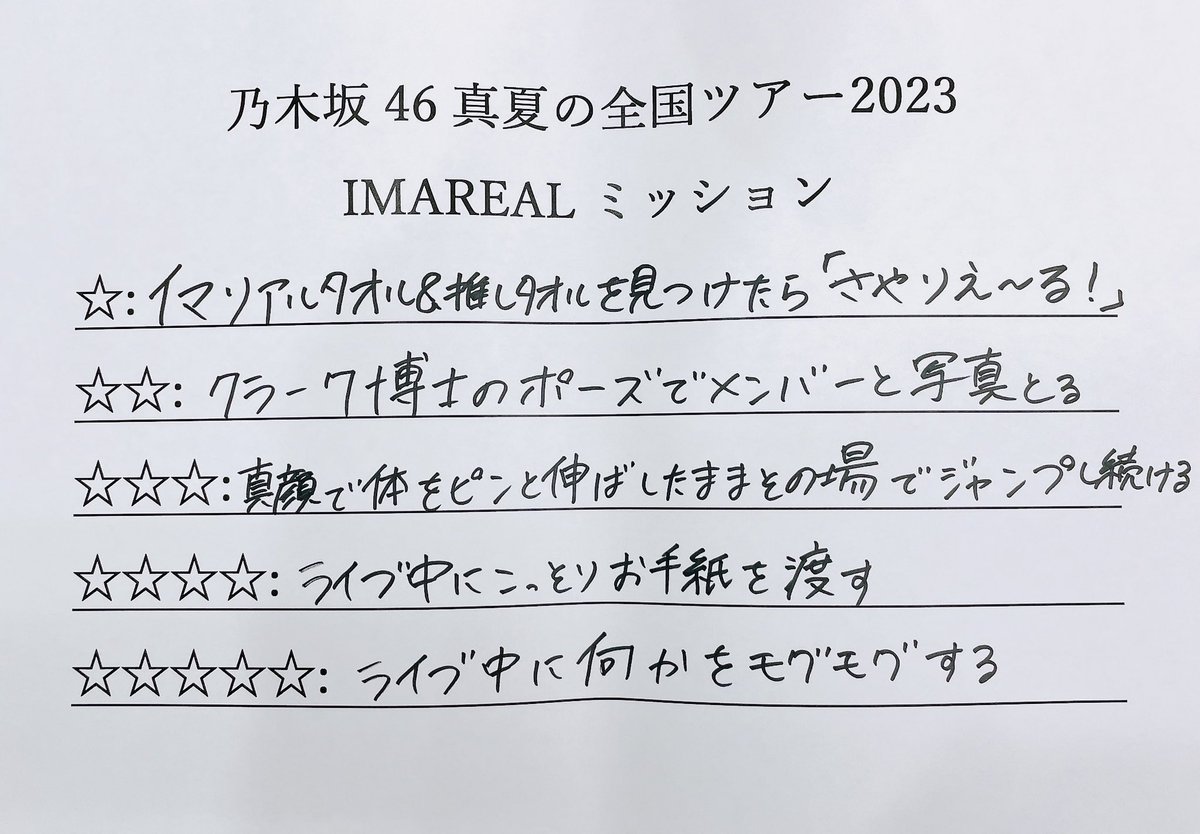 乃木坂 46 真夏の全国ツアー2023
IMAREAL ミッション
☆: イマリアルタオル&推しタオルを見つけたら「さやりえ〜る!」
☆☆: クラーク博士のポーズでメンバーと写真とる
☆☆☆: 真顔で体をピンと伸ばしたままその場でジャンプし続ける
☆☆☆☆: ライブ中にこっそりお手紙を渡す
☆☆☆☆☆: ライブ中に何かをモグモグする